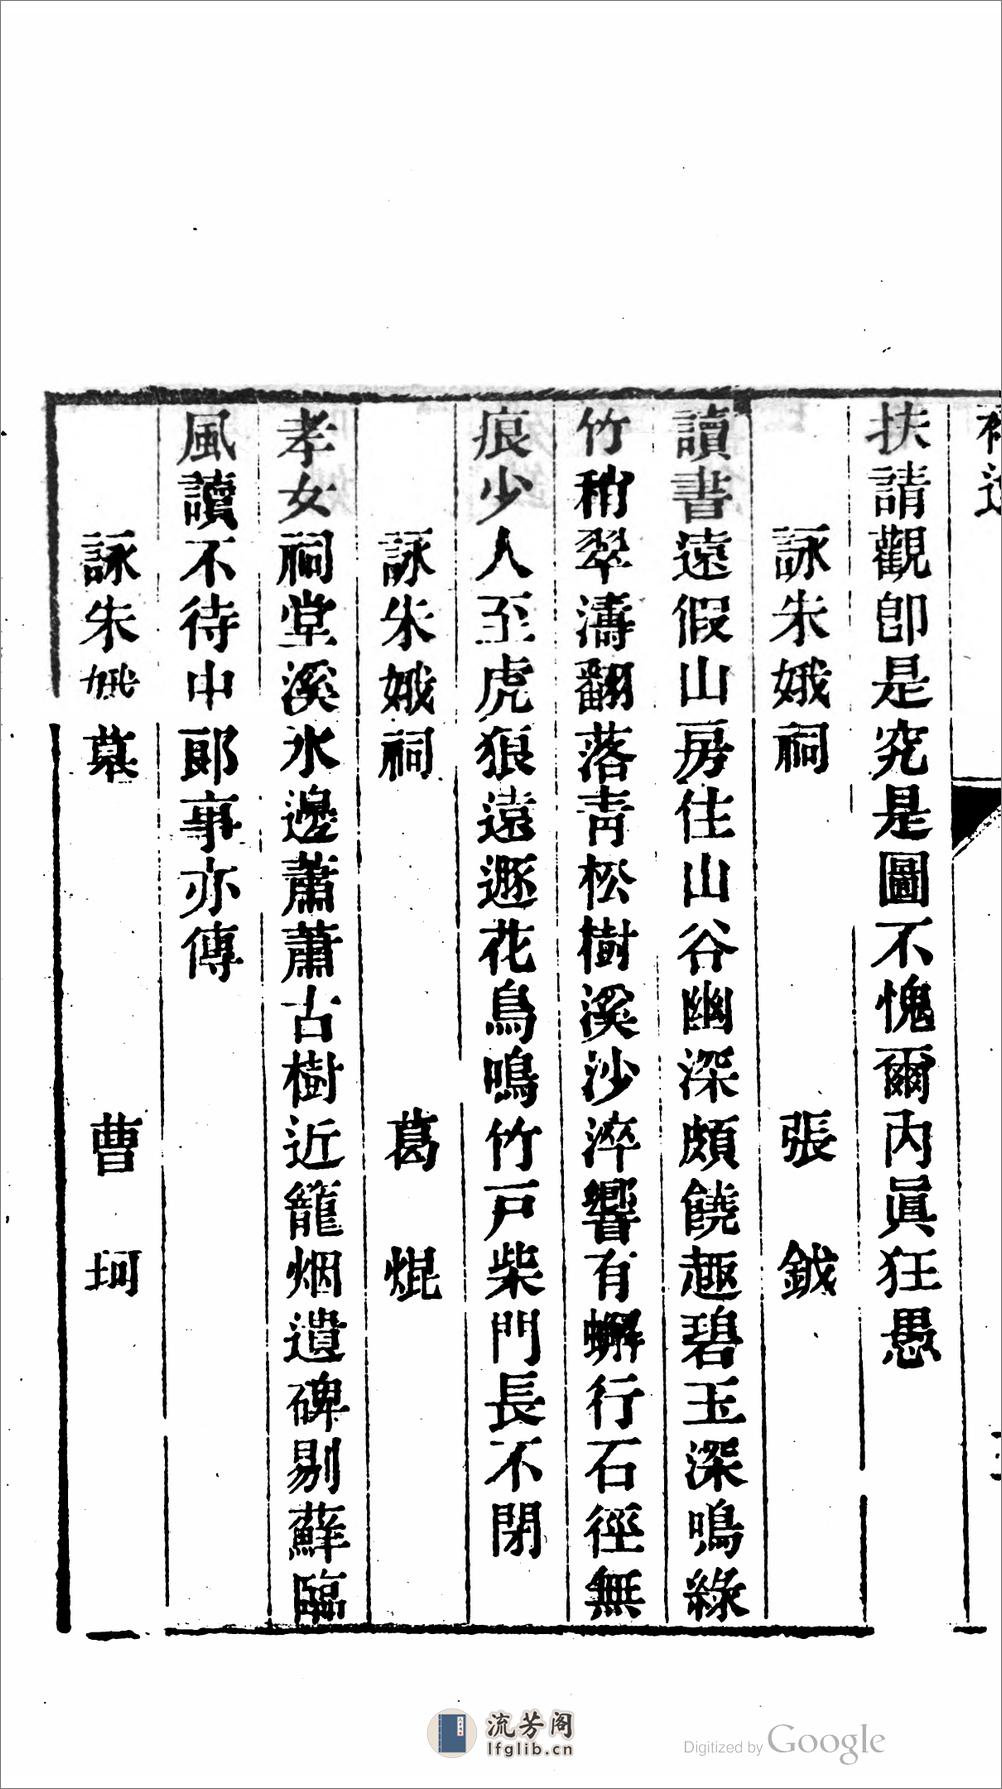 扶請觀卽是究是圖不愧爾內眞狂愚
詠朱娥祠 張鉞
讀書遠假山房住山谷幽深頗饒趣碧玉深鳴綠
竹稍翠濤翻落靑松樹溪沙淬響有蠏行石徑無
痕少人至虎狼遠遯花鳥鳴竹戸柴門長不閉
詠朱娥祠 葛焜
孝女祠堂溪水邊蕭蕭古樹近籠烟遺碑剔蘚臨
風讀不待中郞事亦傳
詠朱娥墓 曹珂
流芳阁
lfglib.cn
Digitized by Google